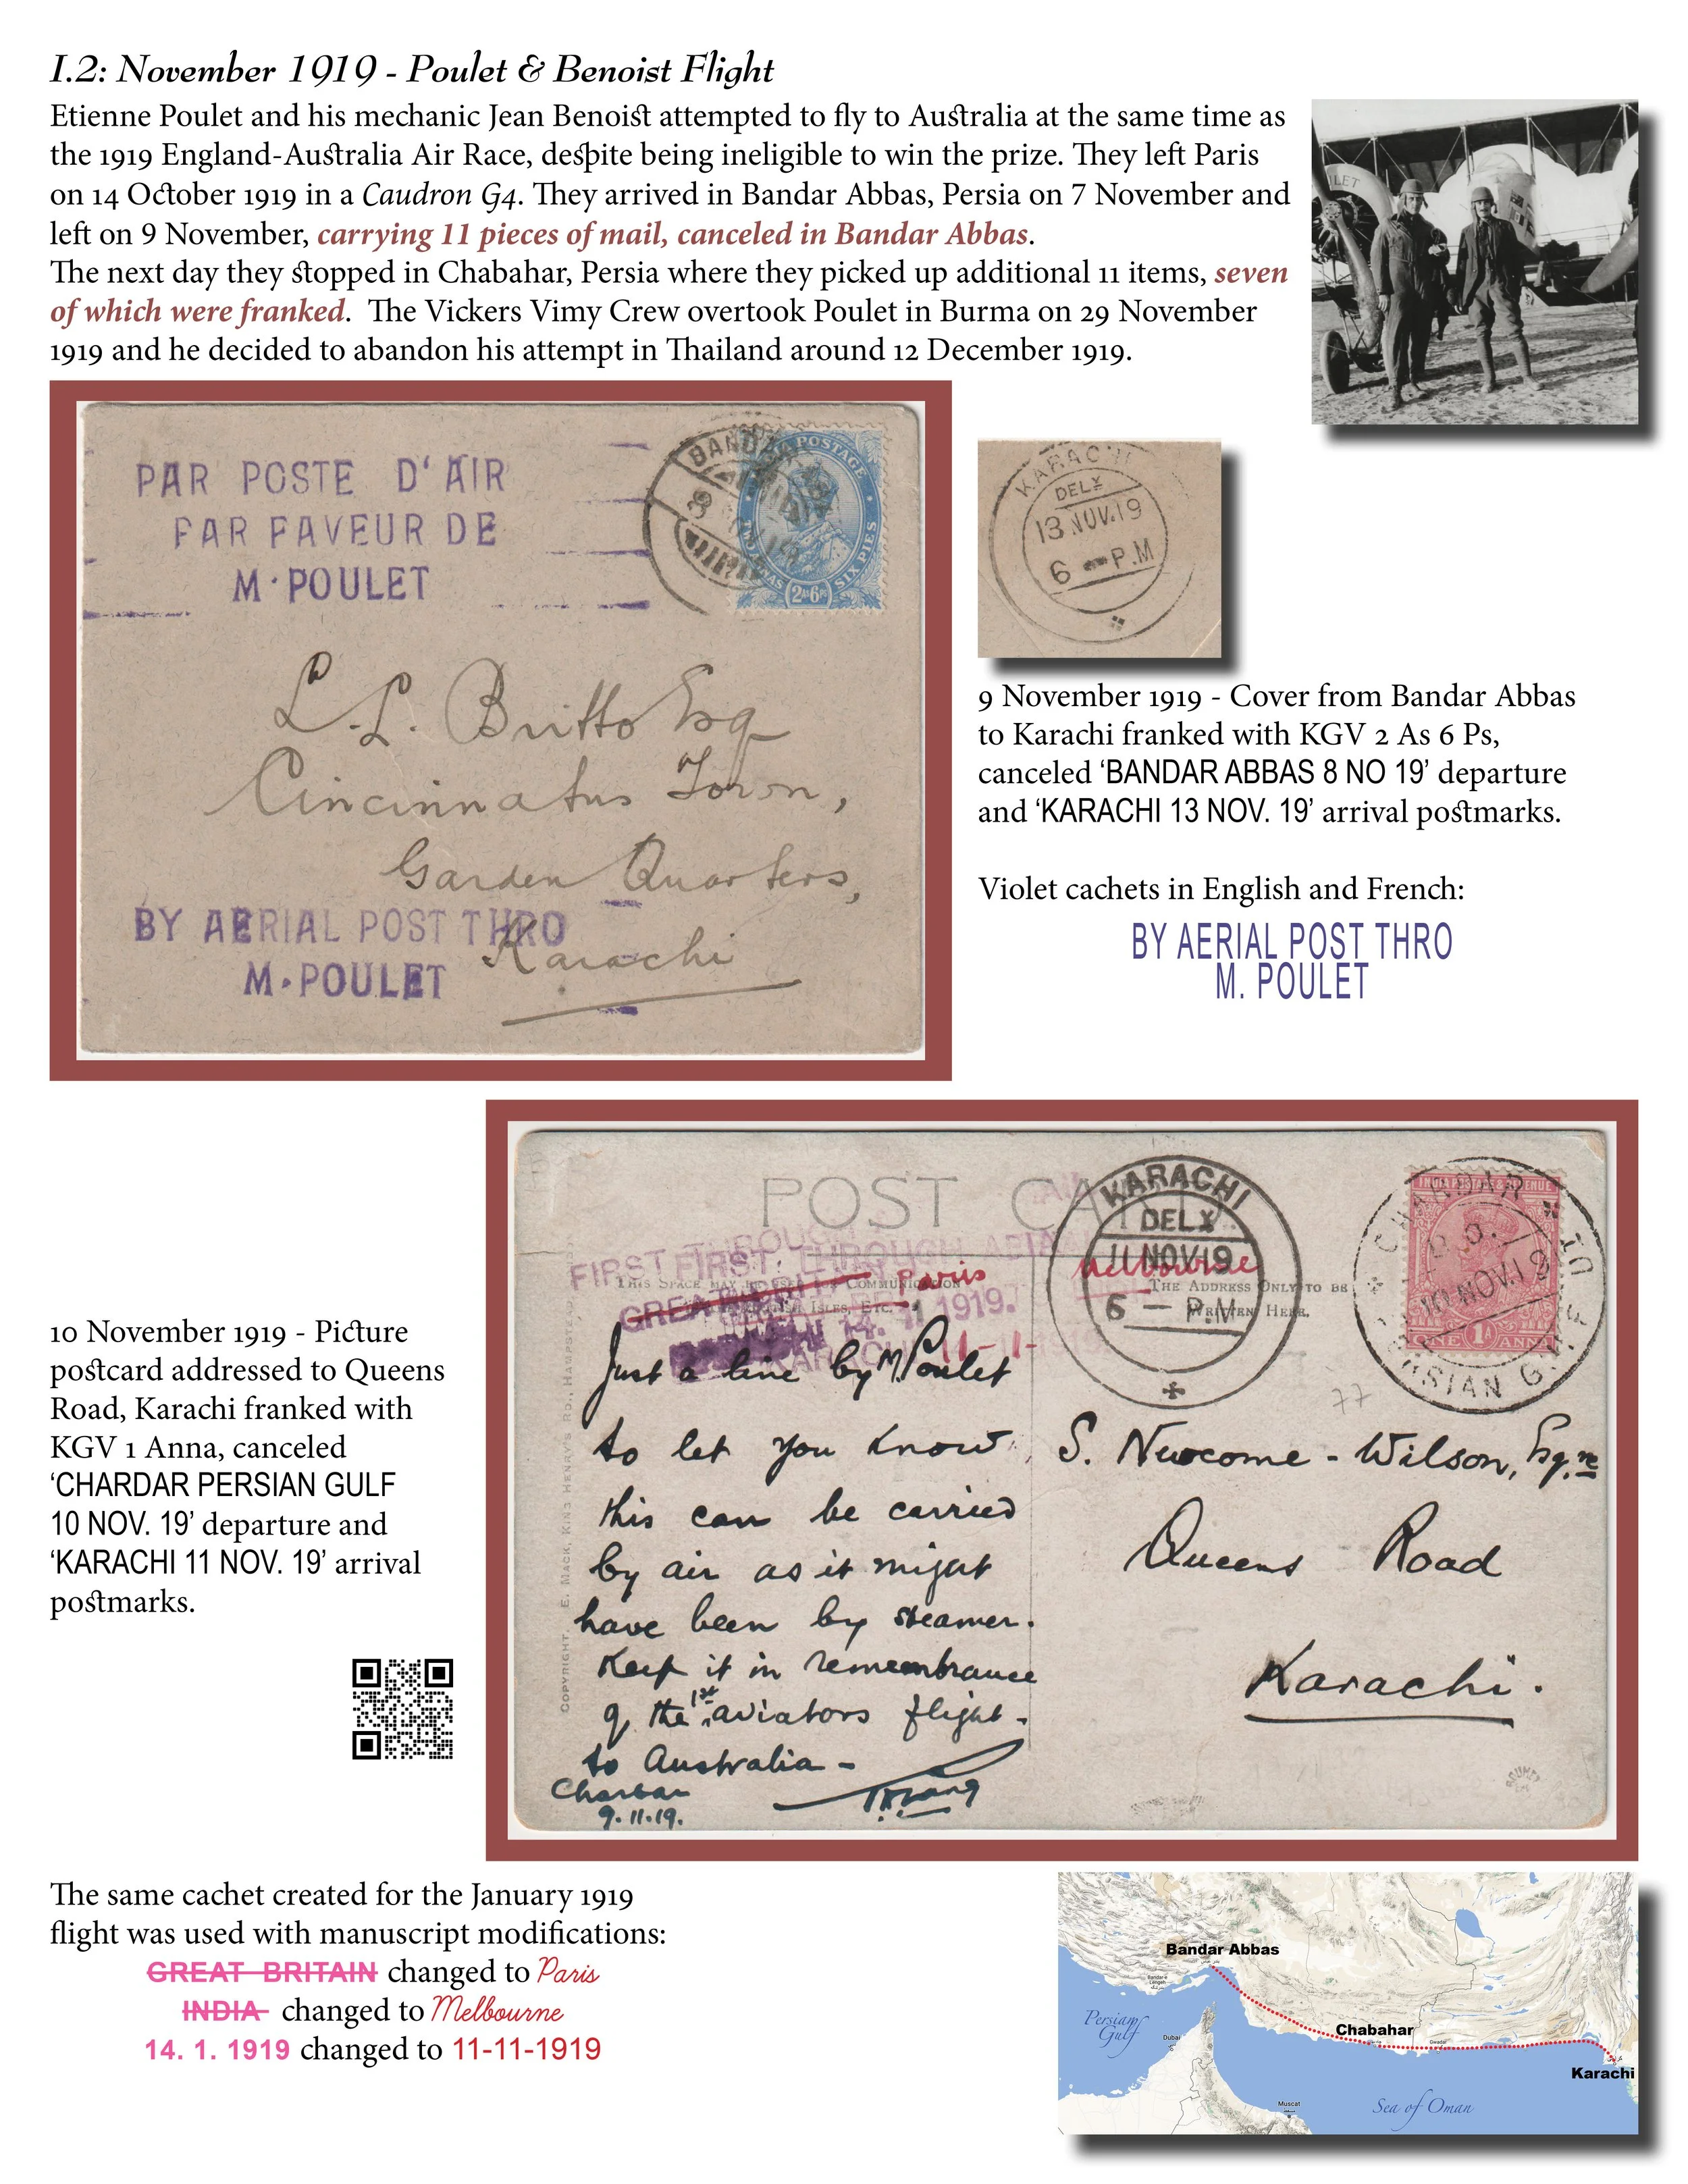 I.2: November 1919 - Poulet & Benoist Flight
Etienne Poulet and his mechanic Jean Benoist attempted to fly to Australia at the same time as
the 1919 England-Australia Air Race, despite being ineligible to win the prize. They left Paris
on 14 October 1919 in a Caudron G4. They arrived in Bandar Abbas, Persia on 7 November and
left on 9 November, carrying 11 pieces of mail, canceled in Bandar Abbas.
The next day they stopped in Chabahar, Persia where they picked up additional 11 items, seven
of which were franked. The Vickers Vimy Crew overtook Poulet in Burma on 29 November
1919 and he decided to abandon his attempt in Thailand around 12 December 1919.
PAR POSTE D'AIR
PAR FAVEUR DE
M·POULET
POSTAGE
SIX PIES
2As6Ps
L. L. Britto Esq
Cincinnatus Town,
Garden Quarters,
Karachi
BY AERIAL POST THRO
M·POULET
KARACHI
DELY
13 NOV.19
6 - P.M
9 November 1919 - Cover from Bandar Abbas
to Karachi franked with KGV 2 As 6 Ps,
canceled ‘BANDAR ABBAS 8 NO 19’ departure
and ‘KARACHI 13 NOV. 19’ arrival postmarks.
Violet cachets in English and French:
BY AERIAL POST THRO
M. POULET
10 November 1919 - Picture
postcard addressed to Queens
Road, Karachi franked with
KGV 1 Anna, canceled
‘CHARDAR PERSIAN GULF
10 NOV. 19’ departure and
‘KARACHI 11 NOV. 19’ arrival
postmarks.
POST CA
FIRST THROUGH
Paris
Melbourne
THIS SPACE MAY BE USED FOR COMMUNICATION
ISLES, ETC.
THE ADDRESS ONLY TO BE
WRITTEN HERE.
1919.
KARACHI
11-11-
KARACHI
DELY
11 NOV 19
6 - P.M
10 NOV.19
PERSIAN GULF
ONE 1A ANNA
77
Just a line by M. Poulet
to let you know
this can be carried
by air as it might
have been by steamer.
Keep it in remembrance
of the 1st aviators flight
to Australia -
Charbar
9.11.19.
S. Newcome - Wilson, Esqre
Queens Road
Karachi.
COPYRIGHT. E. MACK, KING HENRY'S RD., HAMPSTEAD
The same cachet created for the January 1919
flight was used with manuscript modifications:
GREAT BRITAIN changed to Paris
INDIA changed to Melbourne
14. 1. 1919 changed to 11-11-1919
Bandar Abbas
Persian
Gulf
Dubai
Chabahar
Karachi
Muscat
Sea of Oman